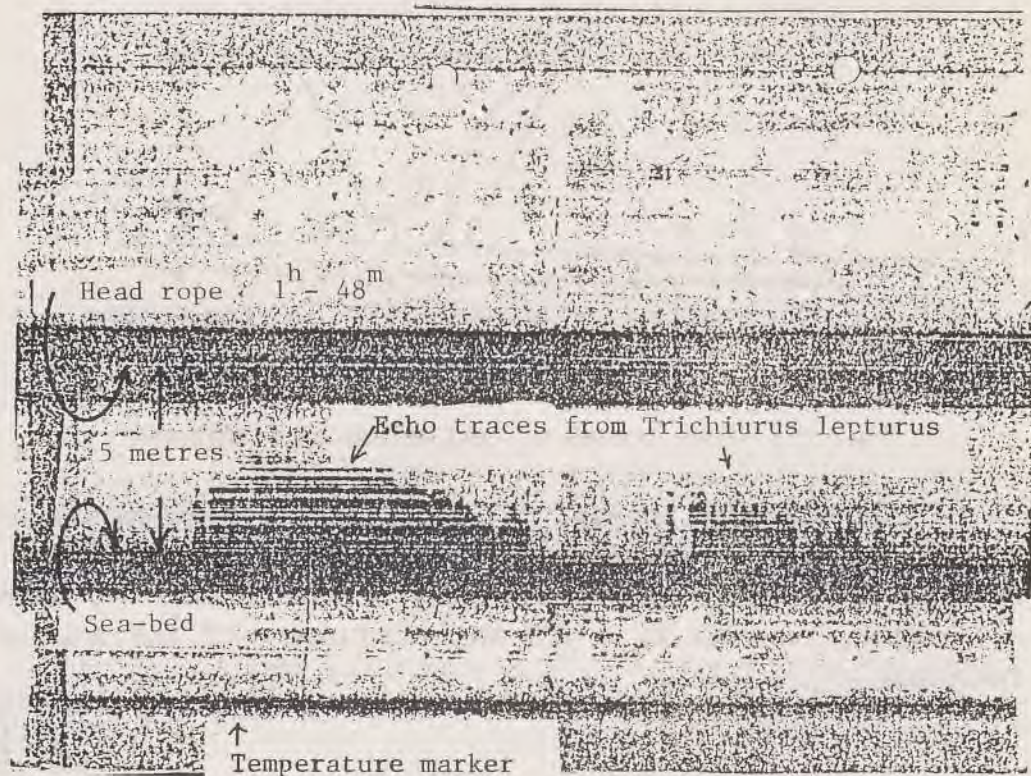 Head rope 1h- 48m
Echo traces from Trichiurus lepturus
5 metres
Sea-bed
Temperature marker